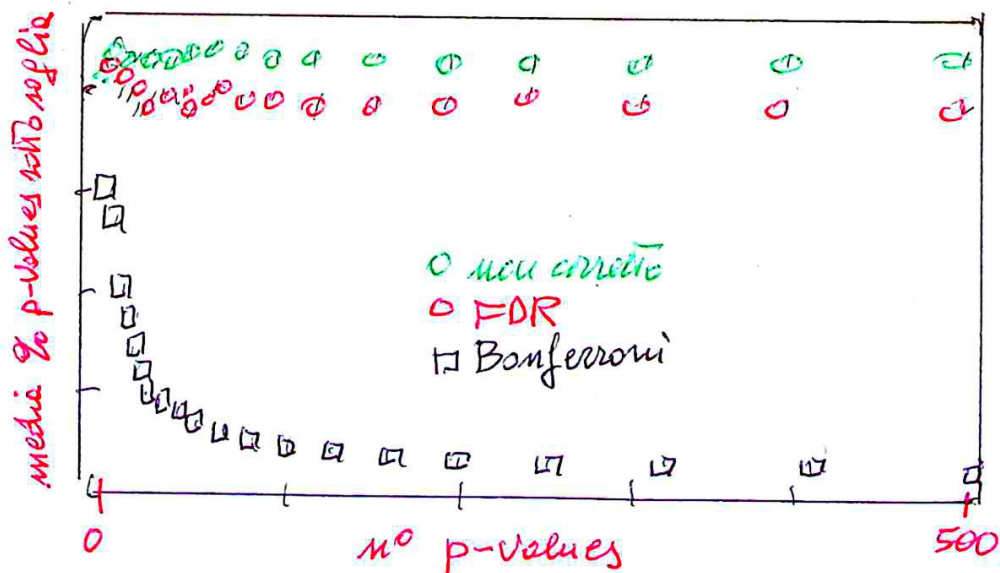 media % p-values sotto soglia
O non corretto
O FDR
□ Bonferroni
0
500
n° p-values